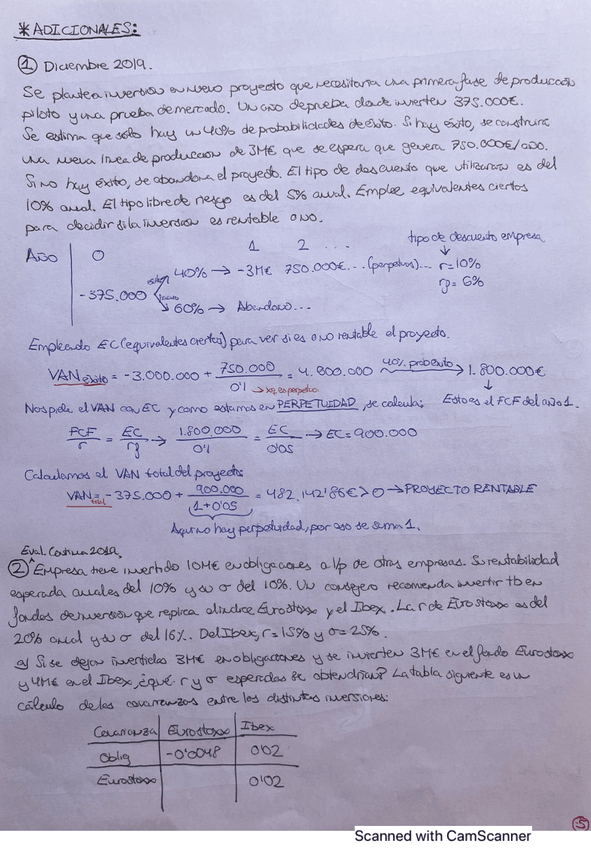 * ADICIONALES:
① Diciembre 2019.
Se plantea inversión en nuevo proyecto que necesitaría una primera fase de producción
piloto y una prueba de mercado. Un año de prueba donde invierten 375.000€.
Se estima que sólo hay un 40% de probabilidades de éxito. Si hay éxito, se construirá
una nueva línea de producción de 3M€ que se espera que genera 750.000€/año.
Si no hay éxito, se abandona el proyecto. El tipo de descuento que utilizaran es del
10% anual. El tipo libre de riesgo es del 5% anual. Emplee equivalentes ciertos
para decidir si la inversión es rentable o no.
AÑO 0 1 2 ... tipo de descuento empresa
-375.000 éxito 40% → -3M€ 750.000€... (perpetuos)... r=10%
60% → Abandono... rf= 6%
Empleando EC (equivalentes ciertos) para ver si es o no rentable el proyecto.
VAN éxito = -3.000.000 + 750.000 / 0'1 = 4.800.000 40% prob éxito → 1.800.000€
→ xq es perpetuo
Nos pide el VAN con EC y como estamos en PERPETUIDAD, se calcula: Esto es el FCF del año 1.
FCF / r = EC / rf → 1.800.000 / 0'1 = EC / 0'05 → EC = 900.000
Calculamos el VAN total del proyecto
VAN total = -375.000 + 900.000 / 1+0'05 = 482.142'86€ > 0 → PROYECTO RENTABLE
Aquí no hay perpetuidad, por eso se suma 1.
Eval. Continua 2019.
② Empresa tiene invertido 10M€ en obligaciones a l/p de otras empresas. Su rentabilidad
esperada anuales del 10% y su σ del 10%. Un consejero recomenda invertir tb en
fondos de inversión que replica al índice Eurostoxx y el Ibex. La r de Eurostoxx es del
20% anual y su σ del 16%. Del Ibex, r=15% y σ=25%.
a) Si se dejan invertidas 3M€ en obligaciones y se invierten 3M€ en el fondo Eurostoxx
y 4M€ en el Ibex, ¿qué r y σ esperadas se obtendrían? La tabla siguiente es un
cálculo de las covarianzas entre las distintas inversiones:
Covarianza Eurostoxx Ibex
Oblig -0'0048 0'02
Eurostoxx 0'02
5
Scanned with CamScanner